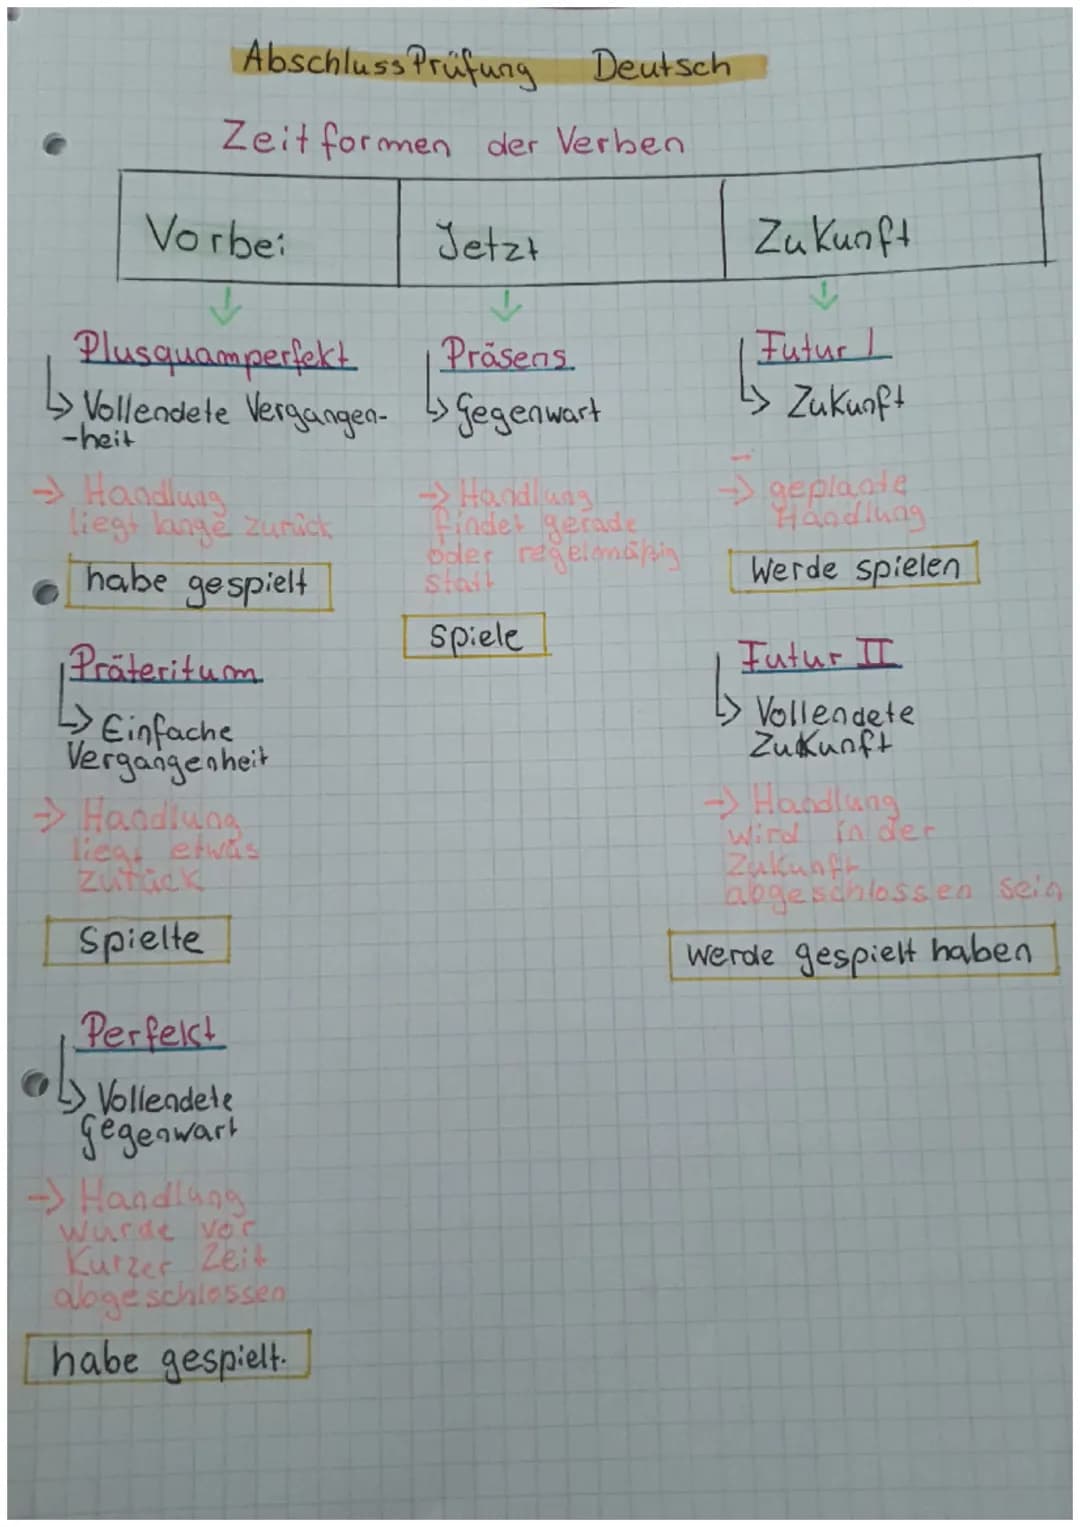 Abschluss Prüfung Deutsch
Zeitformen der Verben
Vorbei
Jetzt
Zukunft
Plusquamperfekt
↳ Vollendete Vergangen-
-heit
→ Handlung
liegt lange zurück
habe gespielt
Präteritum
↳ Einfache
Vergangenheit
→ Handlung
liegt etwas
zurück
spielte
Perfekt
↳ Vollendete
Gegenwart
→ Handlung
wurde vor
kurzer Zeit
abgeschlossen
habe gespielt.
Präsens
↳ Gegenwart
→ Handlung
findet gerade
oder regelmäßig
statt
spiele
Futur I
↳ Zukunft
→ geplante
Handlung
werde spielen
Futur II
↳ Vollendete
Zukunft
→ Handlung
wird in der
Zukunft
abgeschlossen sein
werde gespielt haben